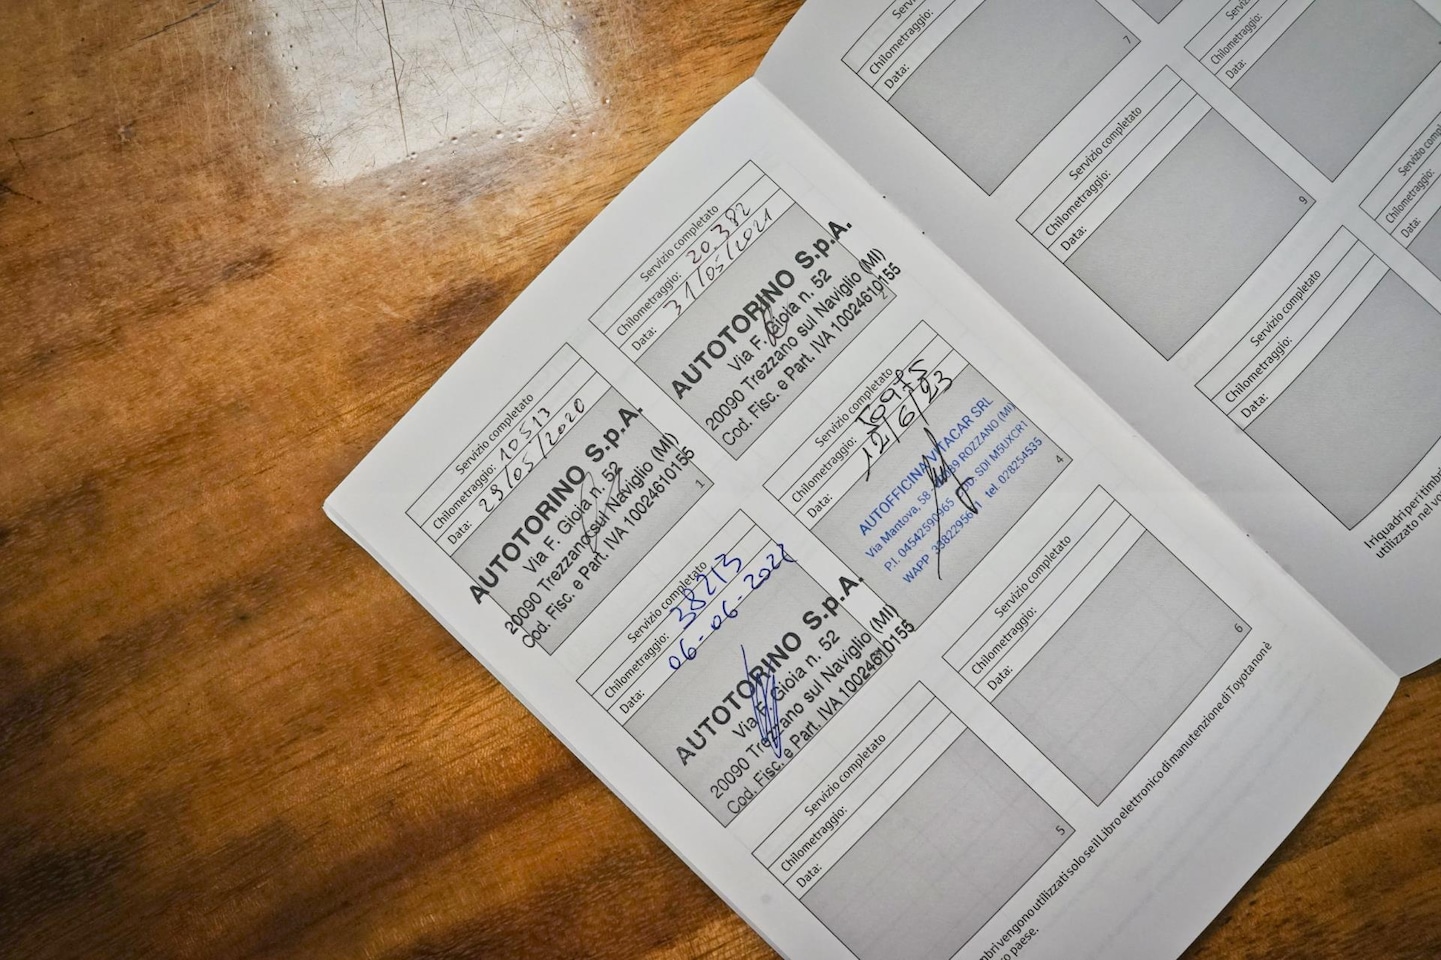 Servizio completato
Chilometraggio: 10513
Data: 29/05/2020
AUTOTORINO S.p.A.
Via F. Gioia n. 52
20090 Trezzano sul Naviglio (MI)
Cod. Fisc. e Part. IVA 10024610155
1
Servizio completato
Chilometraggio: 20.382
Data: 31/05/2021
AUTOTORINO S.p.A.
Via F. Gioia n. 52
20090 Trezzano sul Naviglio (MI)
Cod. Fisc. e Part. IVA 10024610155
2
Servizio completato
Chilometraggio: 38213
Data: 06-06-2022
AUTOTORINO S.p.A.
Via F. Gioia n. 52
20090 Trezzano sul Naviglio (MI)
Cod. Fisc. e Part. IVA 10024610155
Servizio completato
Chilometraggio: 50975
Data: 12/6/23
AUTOFFICINA VITACAR SRL
Via Mantova, 58 ROZZANO (MI)
P.I. 04542590965 COD. SDI M5UXCR1
WAPP. tel. 028254535
4
Servizio completato
Chilometraggio:
Data:
5
Servizio completato
Chilometraggio:
Data:
6
vengono utilizzati solo se il Libro elettronico di manutenzione di Toyota non è
paese.
Servizio completato
Chilometraggio:
Data:
7
Servizio completato
Chilometraggio:
Data:
Servizio completato
Chilometraggio:
Data:
9
Servizio completato
Chilometraggio:
Data:
Servizio completato
Chilometraggio:
Data:
I riquadri per i timbri
utilizzato nel